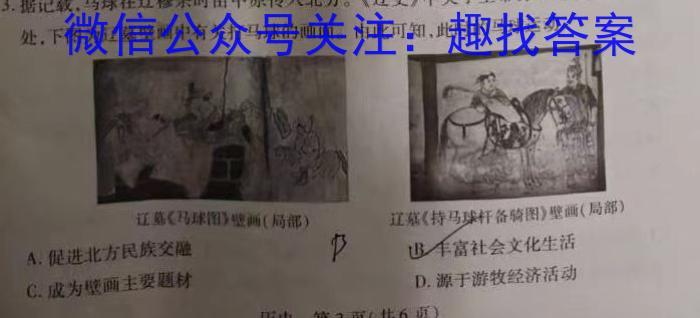 3. 据记载,马球在辽穆宗时由中原传入北方。《辽史》中关于
微信公众号关注:趣找答案
处,下
辽墓《马球图》壁画(局部)
辽墓《持马球杆备骑图》壁画(局部)
A. 促进北方民族交融
B
B. 丰富社会文化生活
C. 成为壁画主要题材
D. 源于游牧经济活动
历史 第2页(共6页)